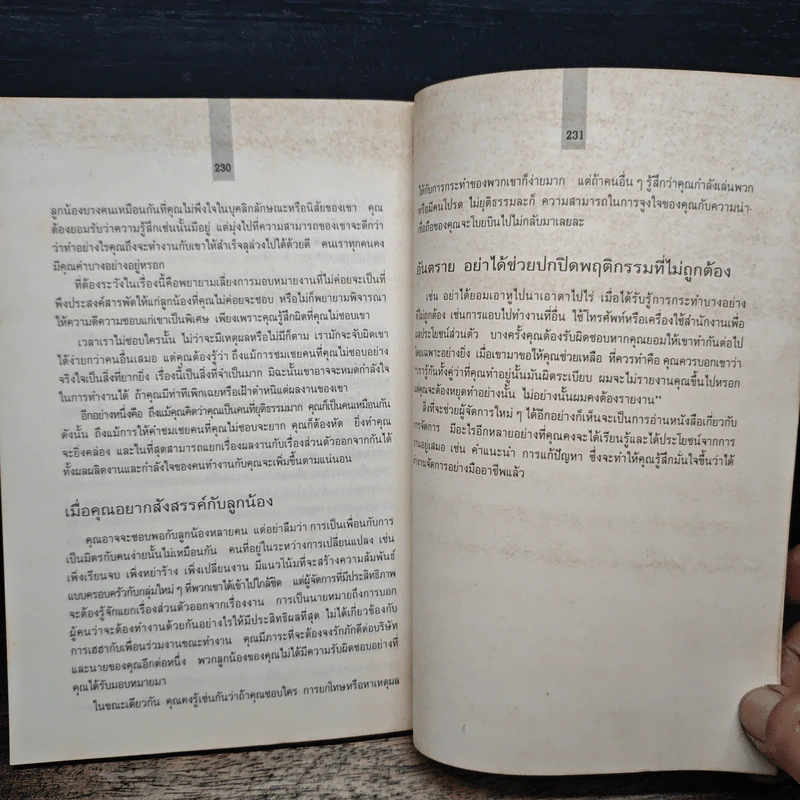 230
ลูกน้องบางคนเหมือนกันที่คุณไม่พึงใจในบุคลิกลักษณะหรือนิสัยของเขา คุณ
ต้องยอมรับว่าความรู้สึกเช่นนั้นมีอยู่ แต่มุ่งไปที่ความสามารถของเขาจะดีกว่า
ว่าทำอย่างไรคุณถึงจะทำงานกับเขาให้สำเร็จลุล่วงไปได้ด้วยดี คนเราทุกคนคง
มีคุณค่าบางอย่างอยู่หรอก
ที่ต้องระวังในเรื่องนี้คือพยายามเลี่ยงการมอบหมายงานที่ไม่ค่อยจะเป็นที่
พึงประสงค์สารพัดให้แก่ลูกน้องที่คุณไม่ค่อยจะชอบ หรือไม่ก็พยายามพิจารณา
ให้ความดีความชอบแก่เขาเป็นพิเศษ เพียงเพราะคุณรู้สึกผิดที่คุณไม่ชอบเขา
เวลาเราไม่ชอบใครนั้น ไม่ว่าจะมีเหตุผลหรือไม่มีก็ตาม เรามักจะจับผิดเขา
ได้ง่ายกว่าคนอื่นเสมอ แต่คุณต้องรู้ว่า ถึงแม้การชมเชยคนที่คุณไม่ชอบอย่าง
จริงใจเป็นสิ่งที่ยากยิ่ง เรื่องนี้เป็นสิ่งที่จำเป็นมาก มิฉะนั้นเขาอาจจะหมดกำลังใจ
ในการทำงานได้ ถ้าคุณมีท่าทีเพิกเฉยหรือเฝ้าตำหนิแต่ผลงานของเขา
อีกอย่างหนึ่งคือ ถึงแม้คุณคิดว่าคุณเป็นคนที่ยุติธรรมมาก คุณก็เป็นคนเหมือนกัน
ดังนั้น ถึงแม้การให้คำชมเชยคนที่คุณไม่ชอบจะยาก คุณก็ต้องหัด ยิ่งทำคุณ
จะยิ่งคล่อง และในที่สุดสามารถแยกเรื่องผลงานกับเรื่องส่วนตัวออกจากกันได้
ทั้งผลผลิตงานและกำลังใจของคนทำงานกับคุณจะเพิ่มขึ้นตามแน่นอน
เมื่อคุณอยากสังสรรค์กับลูกน้อง
คุณอาจจะชอบพอกับลูกน้องหลายคน แต่อย่าลืมว่า การเป็นเพื่อนกับการ
เป็นมิตรกับคนง่ายนั้นไม่เหมือนกัน คนที่อยู่ในระหว่างการเปลี่ยนแปลง เช่น
เพิ่งเรียนจบ เพิ่งหย่าร้าง เพิ่งเปลี่ยนงาน มีแนวโน้มที่จะสร้างความสัมพันธ์
แบบครอบครัวกับกลุ่มใหม่ ๆ ที่พวกเขาได้เข้าไปใกล้ชิด แต่ผู้จัดการที่มีประสิทธิภาพ
จะต้องรู้จักแยกเรื่องส่วนตัวออกจากเรื่องงาน การเป็นนายหมายถึงการบอก
ผู้คนว่าจะต้องทำงานด้วยกันอย่างไรให้มีประสิทธิผลที่สุด ไม่ได้เกี่ยวข้องกับ
การเฮฮากับเพื่อนร่วมงานขณะทำงาน คุณมีภาระที่จะต้องจงรักภักดีต่อบริษัท
และนายของคุณอีกต่อหนึ่ง พวกลูกน้องของคุณไม่ได้มีความรับผิดชอบอย่างที่
คุณได้รับมอบหมายมา
ในขณะเดียวกัน คุณคงรู้เช่นกันว่าถ้าคุณชอบใคร การยกโทษหรือหาเหตุผล
231
ให้กับการกระทำของพวกเขาก็ง่ายมาก แต่ถ้าคนอื่น ๆ รู้สึกว่าคุณกำลังเล่นพวก
หรือมีคนโปรด ไม่ยุติธรรมละก็ ความสามารถในการจูงใจของคุณกับความน่า-
เชื่อถือของคุณจะโบยบินไปไม่กลับมาเลยละ
อันตราย อย่าได้ช่วยปกปิดพฤติกรรมที่ไม่ถูกต้อง
เช่น อย่าได้ยอมเอาหูไปนาเอาตาไปไร่ เมื่อได้รับรู้การกระทำบางอย่าง
ที่ไม่ถูกต้อง เช่นการแอบไปทำงานที่อื่น ใช้โทรศัพท์หรือเครื่องใช้สำนักงานเพื่อ
ผลประโยชน์ส่วนตัว บางครั้งคุณต้องรับผิดชอบหากคุณยอมให้เขาทำกันต่อไป
โดยเฉพาะอย่างยิ่ง เมื่อเขามาขอให้คุณช่วยเหลือ ที่ควรทำคือ คุณควรบอกเขาว่า
"เรารู้กันทั้งคู่ว่าที่คุณทำอยู่นั้นมันผิดระเบียบ ผมจะไม่รายงานคุณขึ้นไปหรอก
แต่คุณจะต้องหยุดทำอย่างนั้น ไม่อย่างนั้นผมคงต้องรายงาน"
สิ่งที่จะช่วยผู้จัดการใหม่ ๆ ได้อีกอย่างก็เห็นจะเป็นการอ่านหนังสือเกี่ยวกับ
การจัดการ มีอะไรอีกหลายอย่างที่คุณคงจะได้เรียนรู้และได้ประโยชน์จากการ
อ่านอยู่เสมอ เช่น คำแนะนำ การแก้ปัญหา ซึ่งจะทำให้คุณรู้สึกมั่นใจขึ้นว่าได้
ทำงานจัดการอย่างมืออาชีพแล้ว